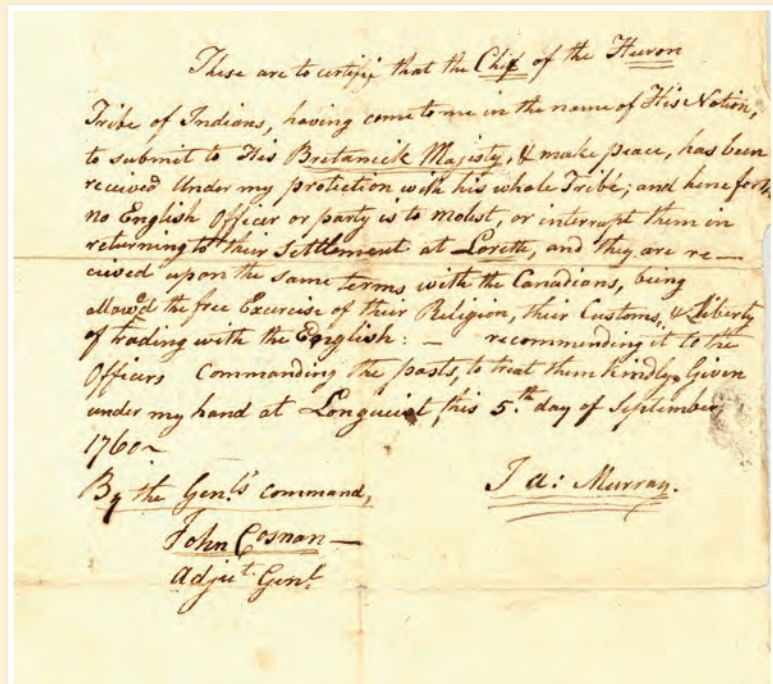 These are to certify that the Chif of the Huron
Tribe of Indians, having come to me in the name of His Nation,
to submit to His Bretanick Majesty, & make peace, has been
received Under my protection with his whole Tribe; and henceforth
no English Officer or party is to molest, or interrupt them in
returning to their Settlement at Lorette, and they are re—
ceived upon the same terms with the Canadians, being
allowed the free Exercise of their Religion, their Customs, & Liberty
of trading with the English: — recommending it to the
Officers Commanding the posts, to treat them kindly. Given
under my hand at Longueist, this 5.th day of September,
1760~
By the Genls command, Ja: Murray.
John Cosnan —
Adjut. Genl.